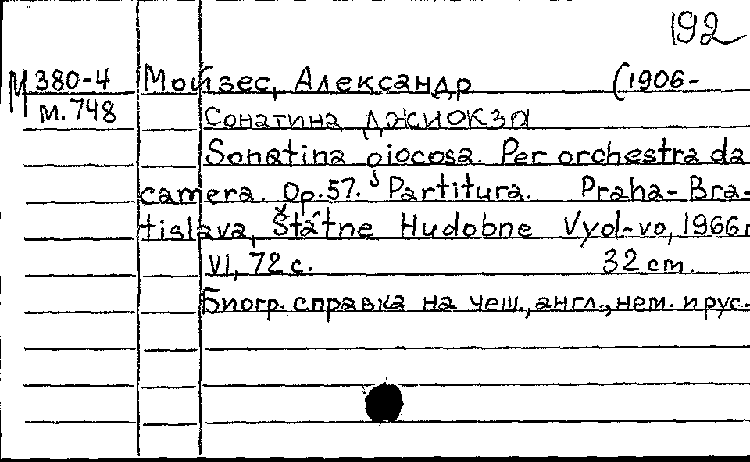 192
М 380-4 Мойзес, Александр (1906-
м. 748 Сонатина ДЖИОКЗА
Sonatina giocosa. Per orchestra da
camera. Op.57. Partitura. Praha-Bra-
tislava, Štátne Hudobne Vyd-vo, 1966г
VI, 72 с. 32 cm.
Биогр. справка на чеш., англ., нем. и рус.